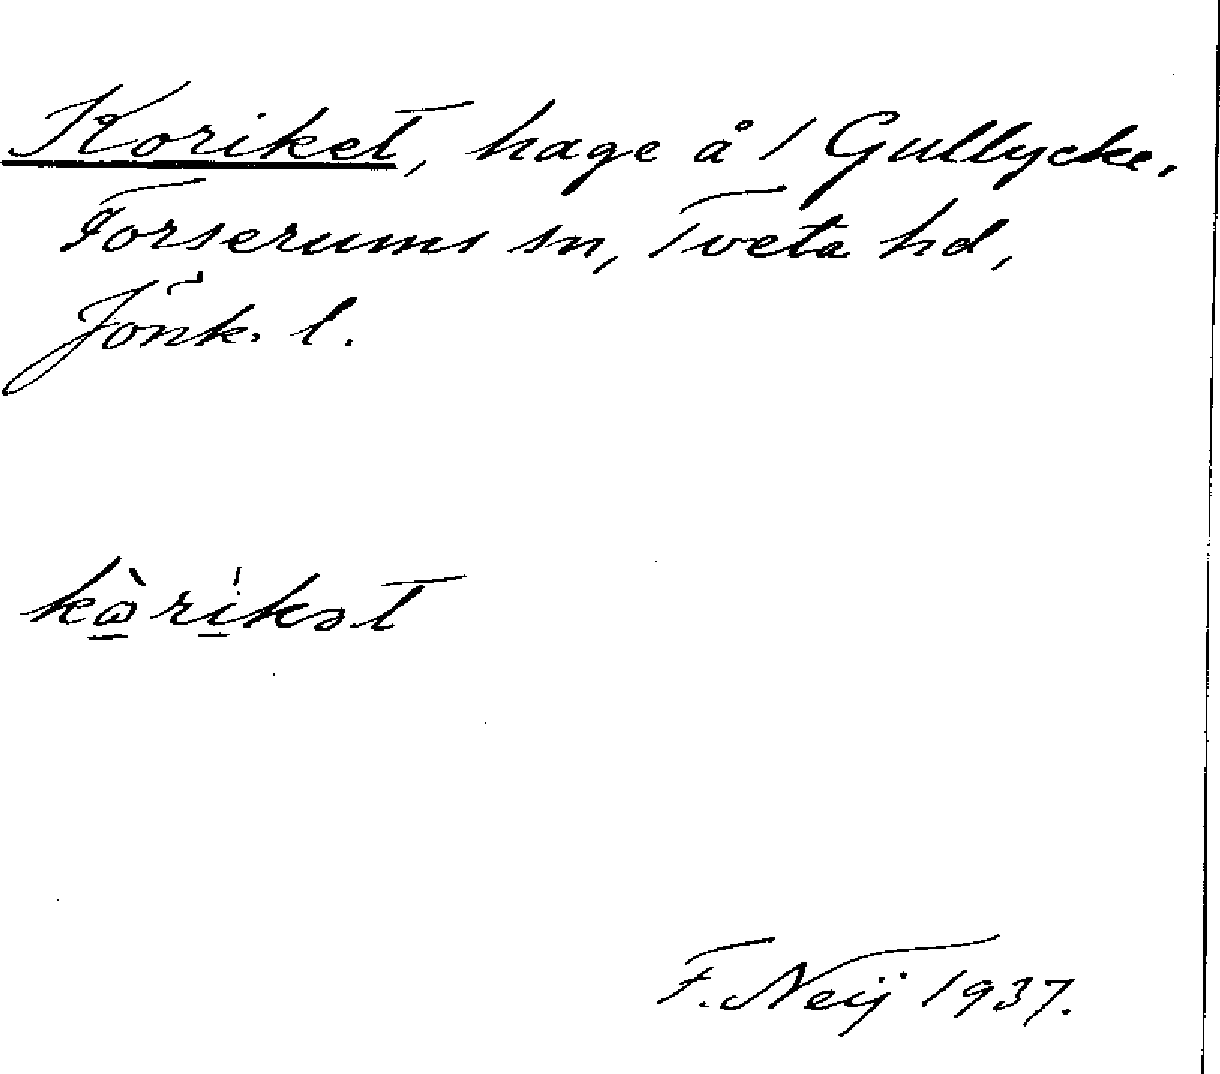 Koriket, hage å 1 Gullycke,
Forserums sn, Tveta hd,
Jönk. l.
kòrikət
F. Neij 1937.